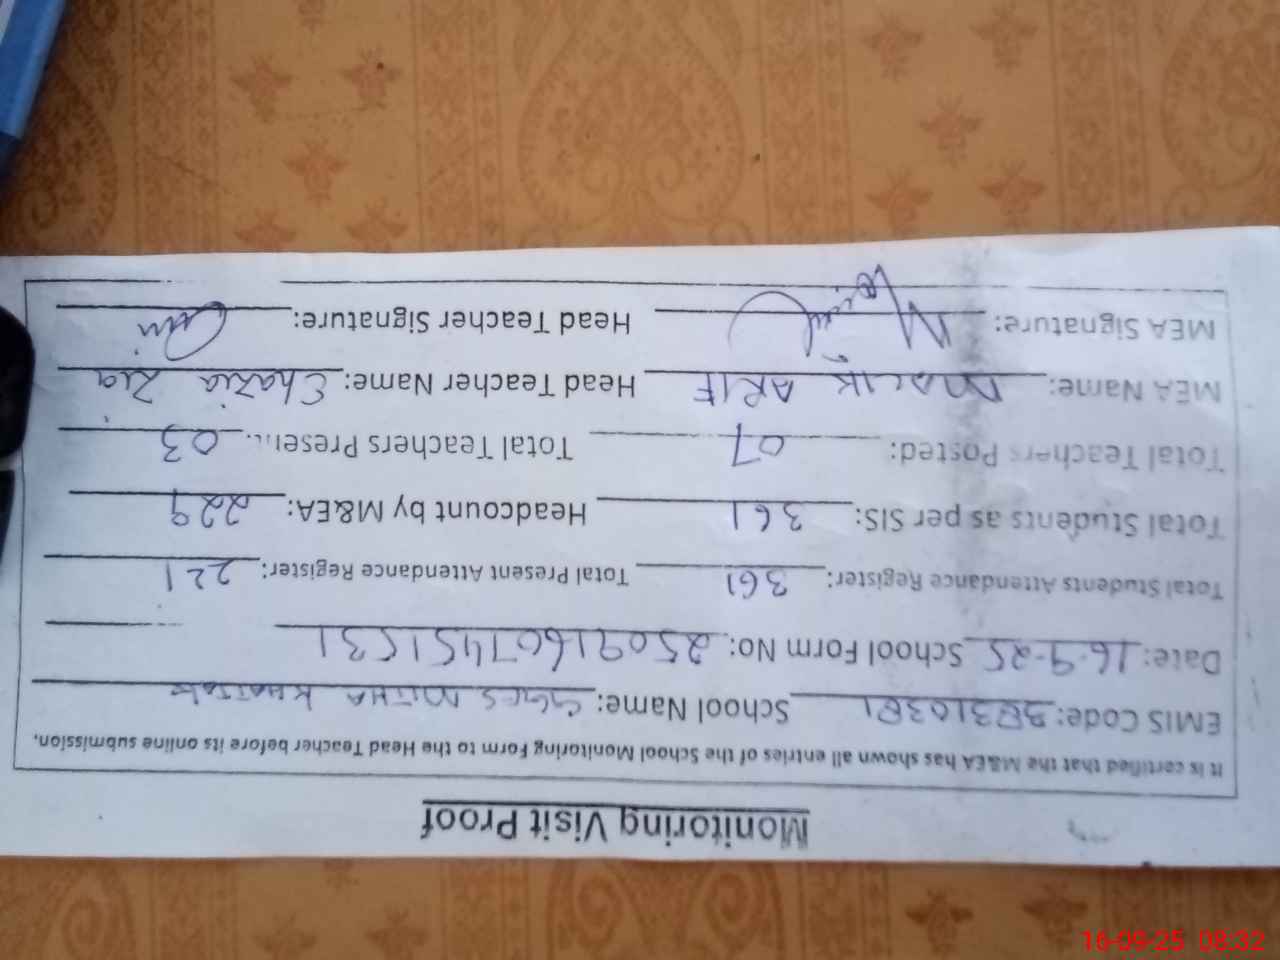 Monitoring Visit Proof
It is certified that the M&EA has shown all entries of the School Monitoring Form to the Head Teacher before its online submission.
EMIS Code: School Name: MITHA
Date: 16-9-25 School Form No: 25091607451531
Total Students Attendance Register: 361 Total Present Attendant Register: 221
Total Students as per SIS: 361 Headcount by M&EA: 229
Total Teachers Posted: 07 Total Teachers Present: 03
MEA Name: MALIK ARIF Head Teacher Name: Shazia Zia
MEA Signature: Head Teacher Signature:
16-09-25 08:32